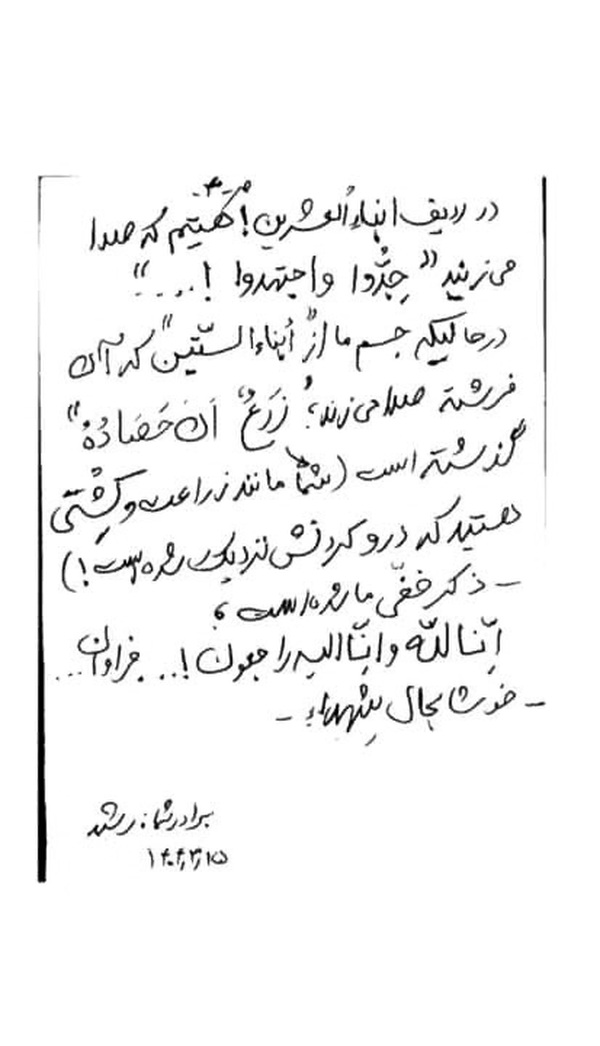 -۳-
در ردیف ابناءُالعشرین! هَستیم که صدا
می‌زنند "جِدُّوا واجتهدوا !...."
درحالیکه جسم ما از "اَبناءالسِّتّین" که آن
فرشته صدا می‌زند؛ "زَرَعٌ آنَ حَصَادُهُ"
گذشته است (شما مانند زراعت و کِشتی
هستید که درو کردنش نزدیک شده است!)
- ذکر خفیّ ما شده است؛
اِنّا لله و انّا الیه راجعون!... فراوان...
- خوشا بحال شهداء -
برادر شما:
۱۴۰۴,۳,۱۵